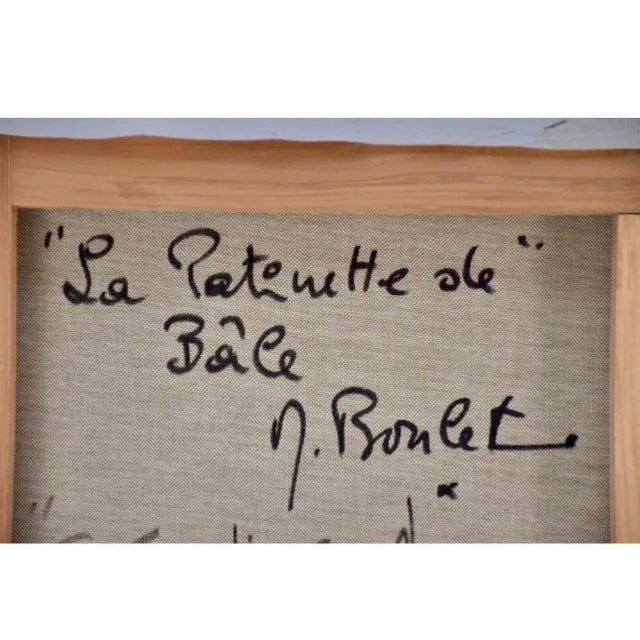 "La Patinette de"
Bâle
M. Boulet